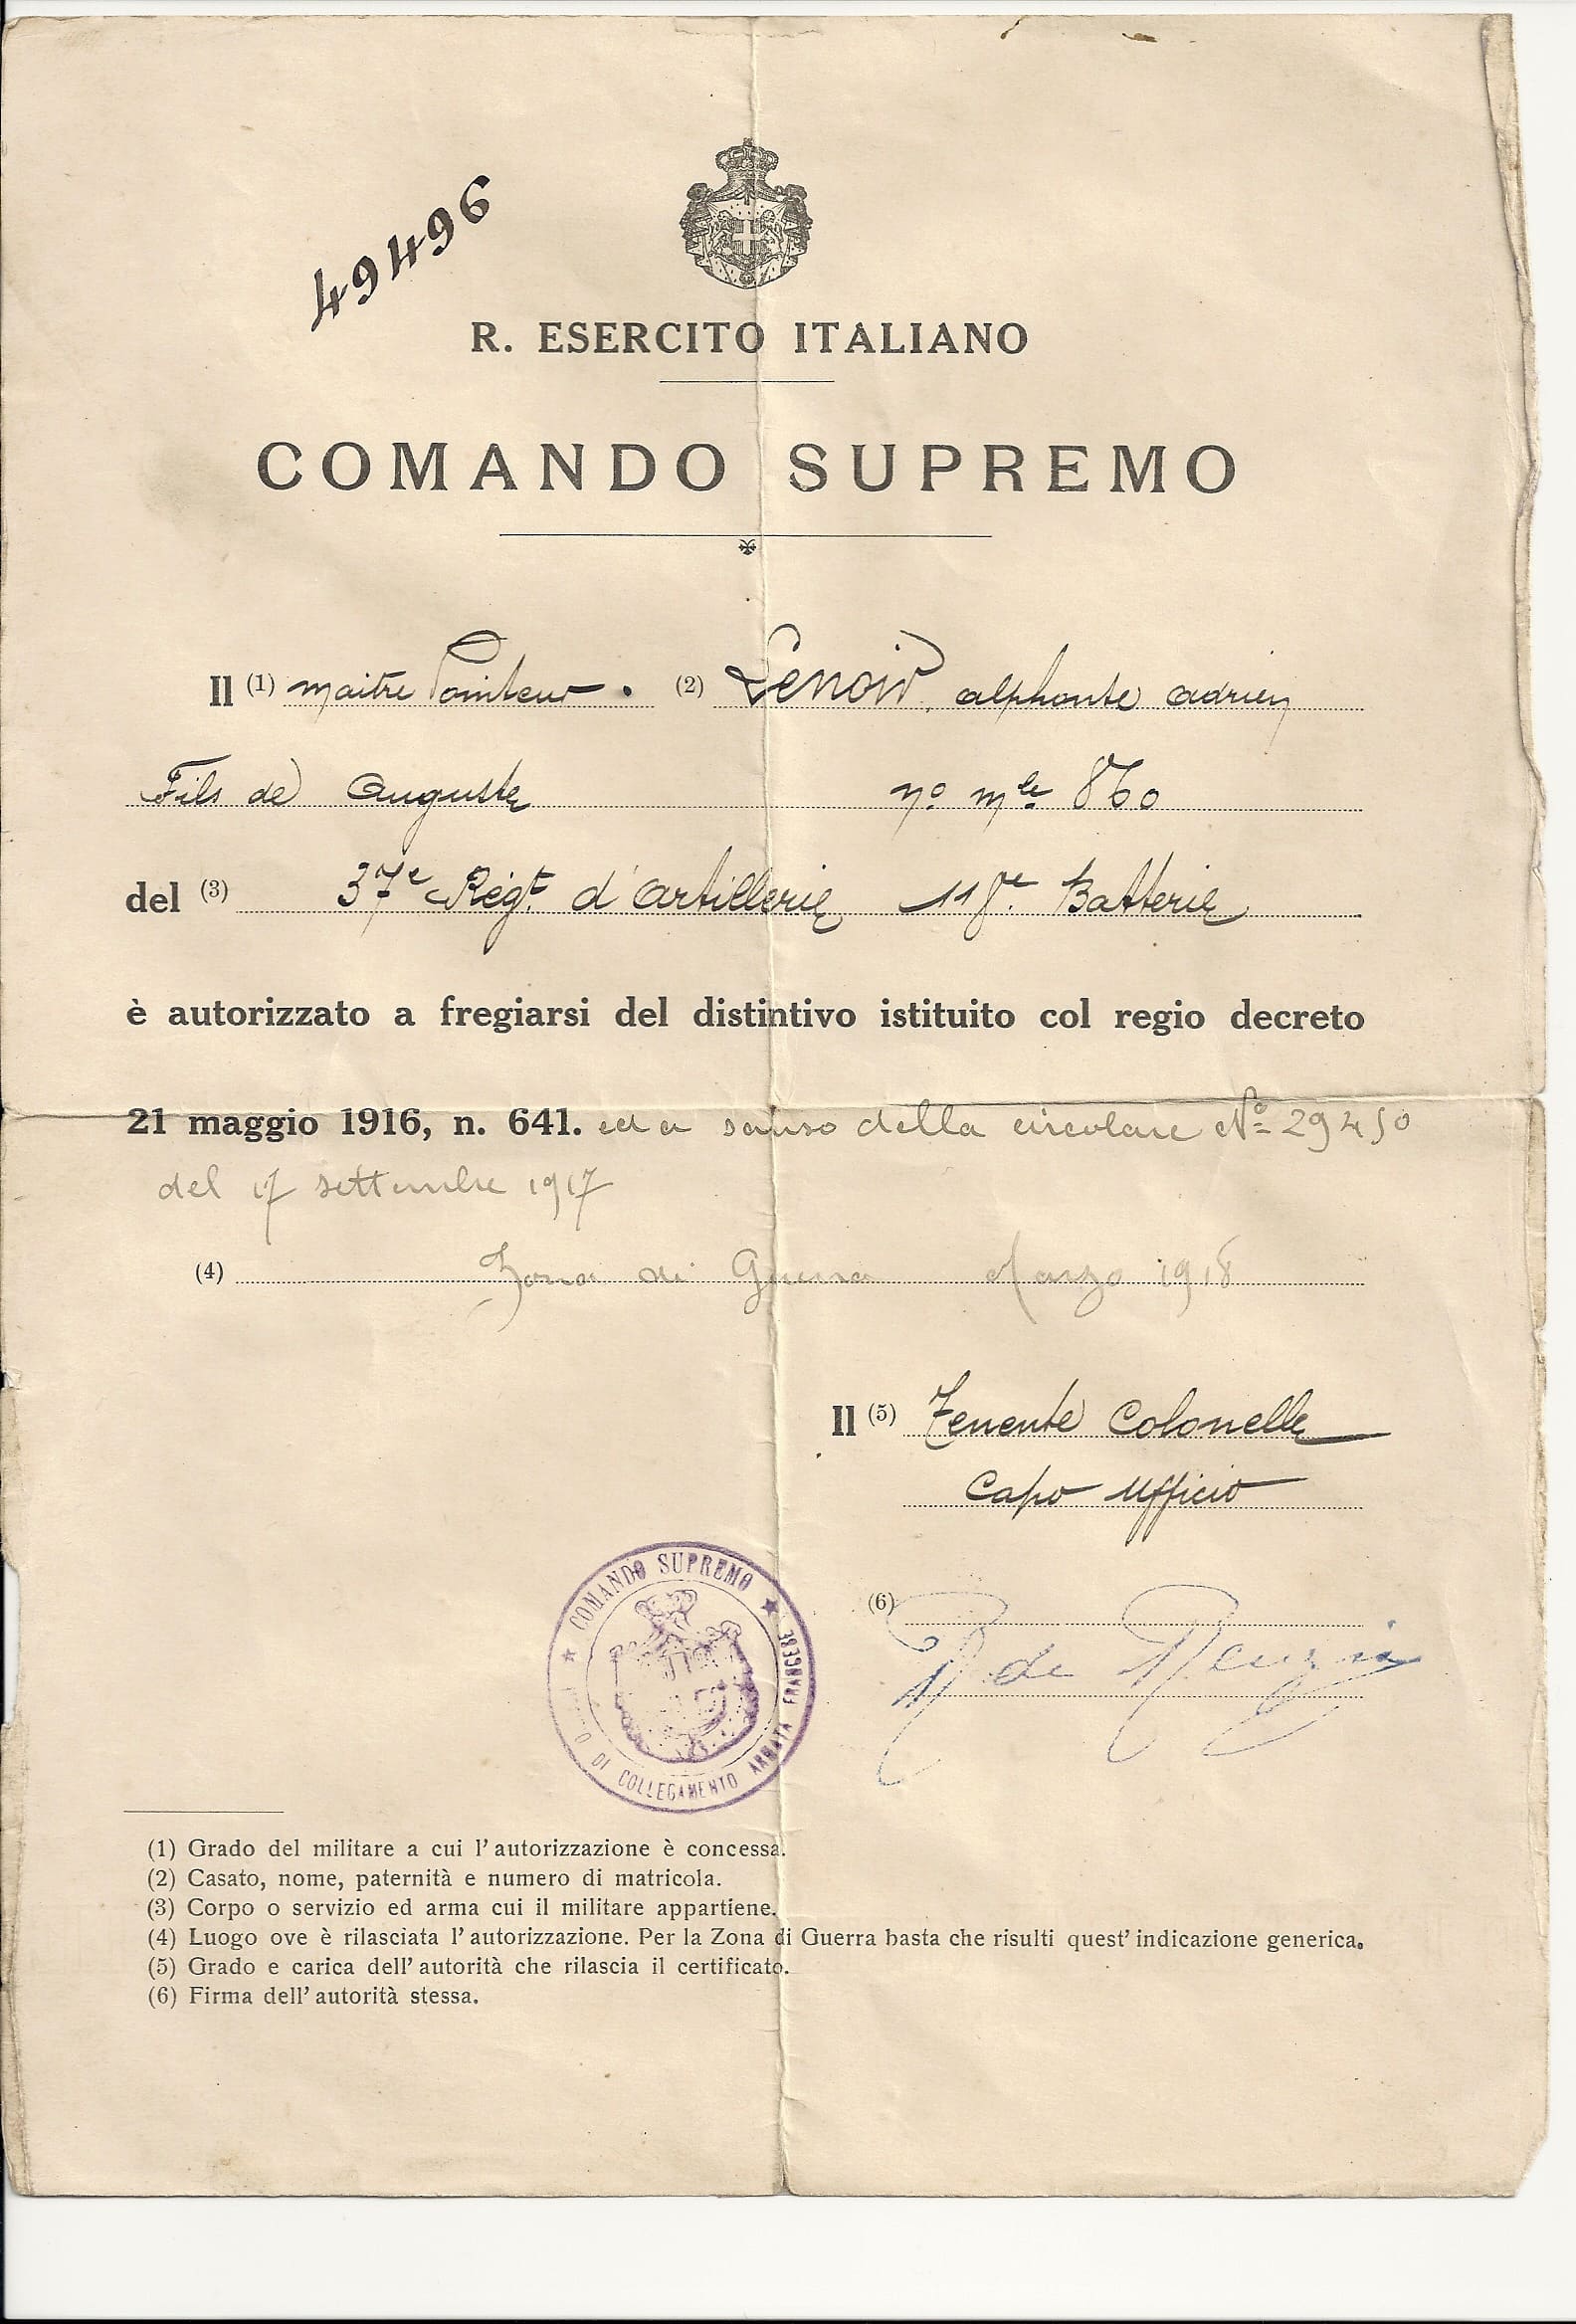 49496
R. ESERCITO ITALIANO
COMANDO SUPREMO
Il (1) maitre Pointeur. (2) Lenoir, alphonse adrien
Fils de Auguste nº mle 860
del (3) 37e Régt d'artillerie 118e Batterie
è autorizzato a fregiarsi del distintivo istituito col regio decreto
21 maggio 1916, n. 641. ed a senso della circolare Nº 29450
del 17 settembre 1917
(4) Zona di Guerra Marzo 1918
Il (5) Tenente Colonelle
Capo Ufficio
(6)
de Renzi
★ COMANDO SUPREMO ★
DI COLLEGAMENTO ARMATA FRANCESE
(1) Grado del militare a cui l'autorizzazione è concessa.
(2) Casato, nome, paternità e numero di matricola.
(3) Corpo o servizio ed arma cui il militare appartiene.
(4) Luogo ove è rilasciata l'autorizzazione. Per la Zona di Guerra basta che risulti quest'indicazione generica.
(5) Grado e carica dell'autorità che rilascia il certificato.
(6) Firma dell'autorità stessa.